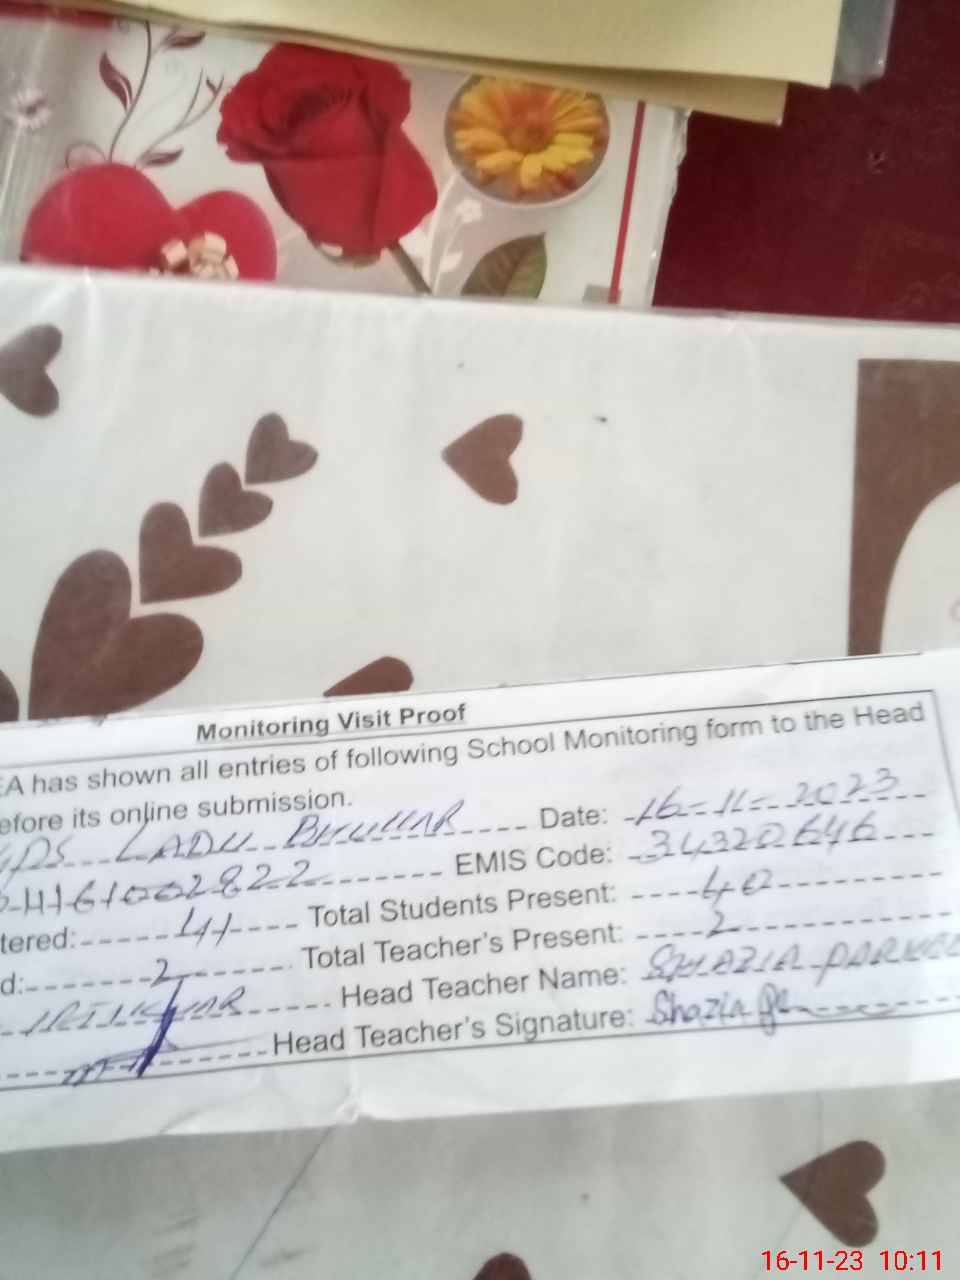 Monitoring Visit Proof
EA has shown all entries of following School Monitoring form to the Head
efore its online submission.
GPS LADU Date: 16-11-2023
EMIS Code: 34320646
tered: 41 Total Students Present: 40
d: 2 Total Teacher's Present: 2
Head Teacher Name: SHAZIA PARVEE
Head Teacher's Signature: Shazia
16-11-23 10:11